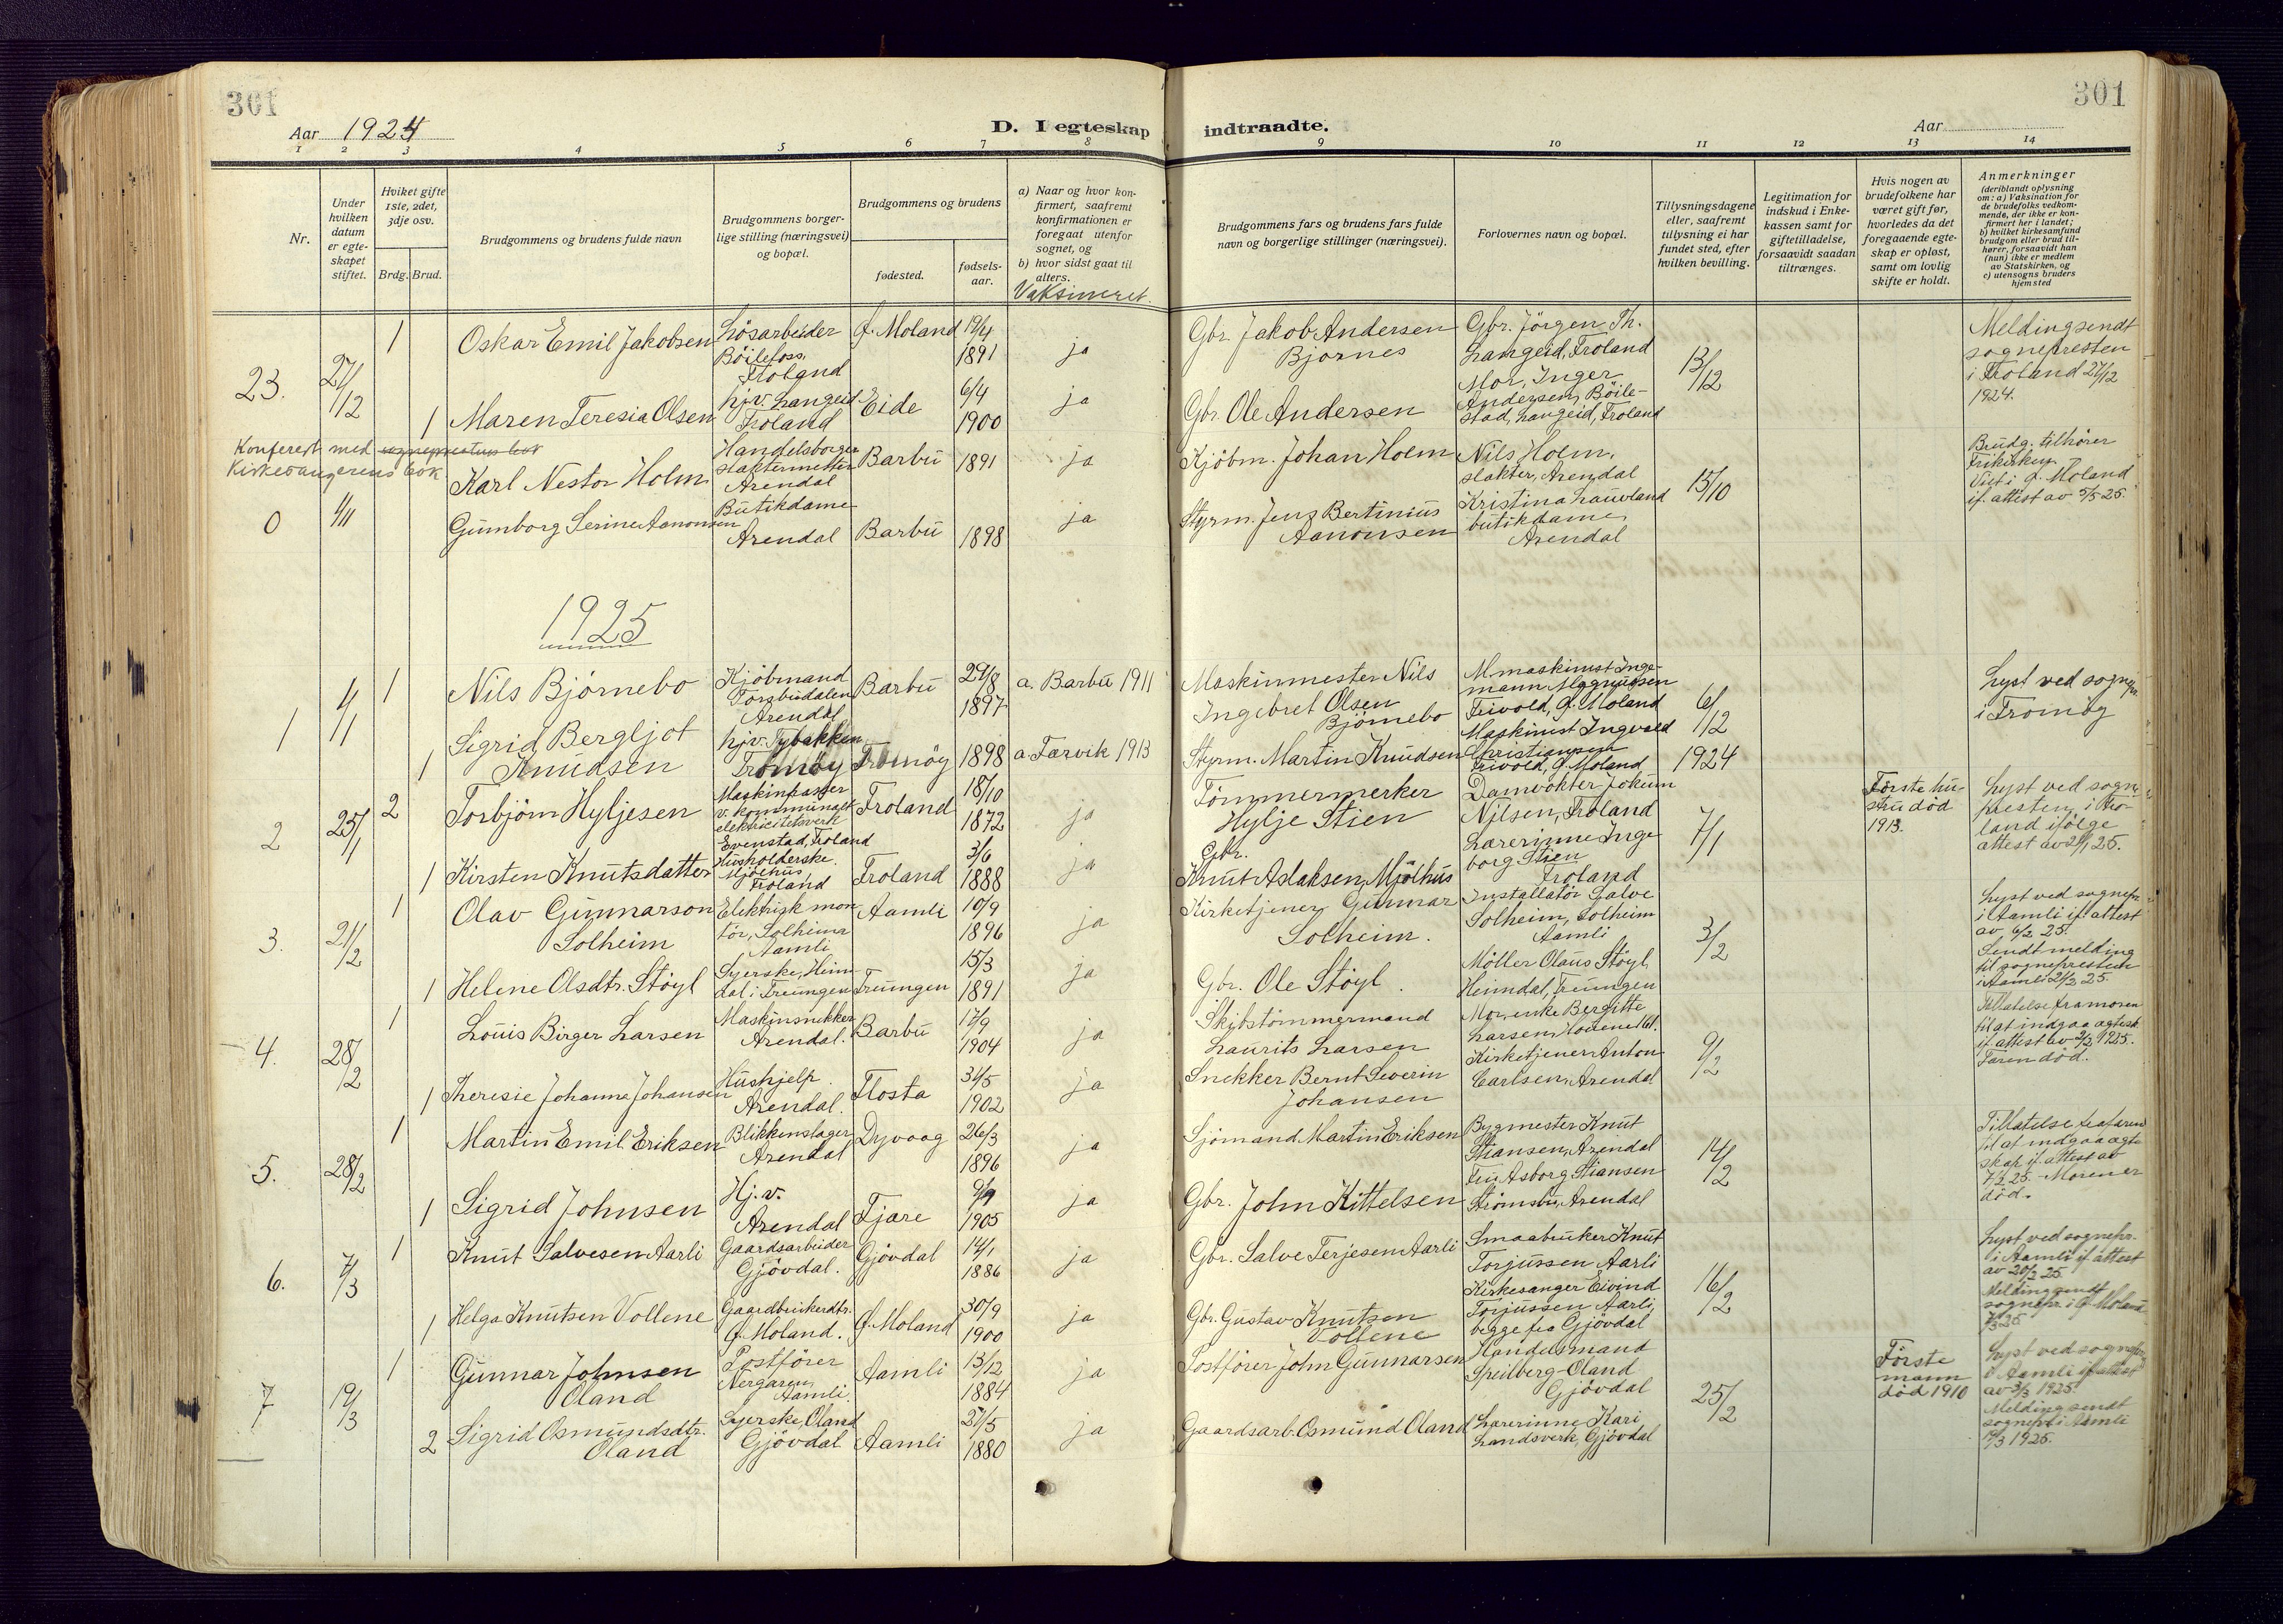 301
301
Aar 1924
D. I egteskap indtraadte.
Aar
1 2 3 4 5 6 7 8 9 10 11 12 13 14
Nr.
Under hvilken datum er egteskapet stiftet.
Hviket gifte 1ste, 2det, 3dje osv.
Brdg. Brud.
Brudgommens og brudens fulde navn
Brudgommens borgerlige stilling (næringsvei) og bopæl.
Brudgommens og brudens
fødested.
fødsels-aar.
a) Naar og hvor konfirmert, saafremt konfirmationen er foregaat utenfor sognet, og
b) hvor sidst gaat til alters.
Vaksineret.
Brudgommens fars og brudens fars fulde navn og borgerlige stillinger (næringsvei).
Forlovernes navn og bopæl.
Tillysningsdagene eller, saafremt tillysning ei har fundet sted, efter hvilken bevilling.
Legitimation for indskud i Enkekassen samt for giftetilladelse, forsaavidt saadan tiltrænges.
Hvis nogen av brudefolkene har været gift før, hvorledes da det foregaaende egteskap er opløst, samt om lovlig skifte er holdt.
Anmerkninger
(deriblandt oplysning om: a) Vaksination for de brudefolks vedkommende, der ikke er konfirmert her i landet; b) hvilket kirkesamfund brudgom eller brud tilhører, forsaavidt han (hun) ikke er medlem av Statskirken, og c) utensogns bruders hjemsted
23. 27/12
1 Oskar Emil Jakobsen
Løsarbeider Bøilefoss, Froland
Ø. Moland 19/4 1891
ja
Gbr. Jakob Andersen Bjornes
Gbr. Jörgen Th. Langeid, Froland
Mor, Inger Andersen, Böilestad, Langeid, Froland
13/12
Melding sendt sognepresten i Froland 27/12 1924.
1 Maren Teresia Olsen
hjv. Langeid Froland
Eide 6/4 1900
ja
Gbr. Ole Andersen
Konferert med sogneprestens bok
Kirkesangerens bok
0 1/11
Karl Nestor Holm
Handelsborger slaktermester Arendal
Barbu 1891
ja
Kjöbm. Johan Holm
Nils Holm, slakter, Arendal
Kristina Lauvland butikdame, Arendal
15/10
Brudg. tilhører Frikirken. Viet i Ø. Moland if. attest av 5/5 25.
Gunborg Serine Aanonsen
Butikdame Arendal
Barbu 1898
ja
Styrm. Jens Bertinius Aanonsen
1925
1 4/1
1 Nils Björnebo
Kjöbmand Torsbudalen Arendal
Barbu 29/8 1897
a. Barbu 1911
Maskinmester Nils Ingebret Olsen Björnebo
M. maskinist Ingemann Magnussen Frivold, Ø. Moland
Maskinist Ingvald Christiansen Frivold, Ø. Moland
6/12 1924
Lyst ved sognepr. i Tromöy
1 Sigrid Bergljot Knudsen
hjv. Tybakken Tromöy
Tromöy 1898
a Færvik 1913
Styrm. Martin Knudsen
2 25/1
2 Torbjörn Hyljesen
Maskinpasser v. kommunalt elektricitetsverk Evenstad, Froland
Froland 18/10 1872
ja
Tömmermerker Hylje Stien
Damvokter Jokum Nilsen, Froland
Lærerinne Ingeborg Stien Froland
7/1
Første hustru död 1913.
Lyst ved sognepresten i Froland ifølge attest av 21/1 25.
1 Kirsten Knutsdatter
Husholderske. Mjölhus, Froland
Froland 3/6 1888
ja
Gbr. Knut Aslaksen Mjölhus
3. 21/2
1 Olav Gunnarson Solheim
Elektrisk montör, Solheim Aamli
Aamli 10/9 1896
ja
Kirketjener Gunnar Solheim.
Installatör Salve Solheim, Solheim Aamli
Möller Olaus Stöyl, Heimdal, Treungen
3/2
Lyst ved sognepr. i Aamli if. attest av 6/2 25.
Sendt melding til sognepresten i Aamli 21/2 25.
1 Helene Olsdtr. Stöyl
Syerske, Heimdal i Treungen
Treungen 15/3 1891
ja
Gbr. Ole Stöyl.
4. 28/2
1 Louis Birger Larsen
Maskinsnekker Arendal.
Barbu 17/9 1904
ja
Skibstömmermand Laurits Larsen
Mor, enke Bergitte Larsen,
Kirketjener Anton Carlsen, Arendal
9/2
Tillatelse fra moren til at indgaa ægtesk. if. attest av 2/2 1925. Faren död.
1 Theresie Johanna Johansen
Hushjelp. Arendal.
Flosta 31/5 1902
ja
Snekker Bernt Severin Johansen
5. 28/2
1 Martin Emil Eriksen
Blikkenslager Arendal
Dyvaag 26/3 1896
ja
Sjömand Martin Eriksen
Bygmester Knut Stiansen, Arendal
Fru Asborg Stiansen Strömsbu, Arendal
14/2
Tillatelse fra faren til at indgaa ægteskap if. attest av 7/2 25. - Moren er död.
1 Sigrid Johnsen
Hj.v. Arendal
Fjære 9/9 1905
ja
Gbr. John Kittelsen
6. 7/3
1 Knut Salvesen Aarli
Gaardsarbeider Gjövdal.
Gjövdal 14/1 1886
ja
Gbr. Salve Terjesen Aarli
Smaabruker Knut Torjussen Aarli
Kirkesanger Eivind Torjussen Aarli, begge fra Gjövdal
16/2
Lyst ved sognepr. i Aamli if. attest av 20/2 25.
Melding sendt sognepr. i Ø. Moland 7/3 25
1 Helga Knutsen Vollene
Gaardbrukerdtr. Ø. Moland.
Ø. Moland 30/9 1900
ja
Gbr. Gustav Knutsen Vollene
7 19/3
1 Gunnar Johnsen Oland
Postförer Nergaren, Aamli
Aamli 13/12 1884
ja
Postförer John Gunnarsen
Handelsmand Speilberg Oland Gjövdal
Lærerinne Kari Landsverk, Gjövdal
25/2
Første mann död 1910
Lyst ved sognepr. i Aamli if. attest av 3/3 1925.
Melding sendt sognepr. i Aamli 19/3 1925.
2 Sigrid Osmundsdtr. Oland
Syerske, Oland Gjövdal
Aamli 27/5 1880
ja
Gaardsarb. Osmund Oland